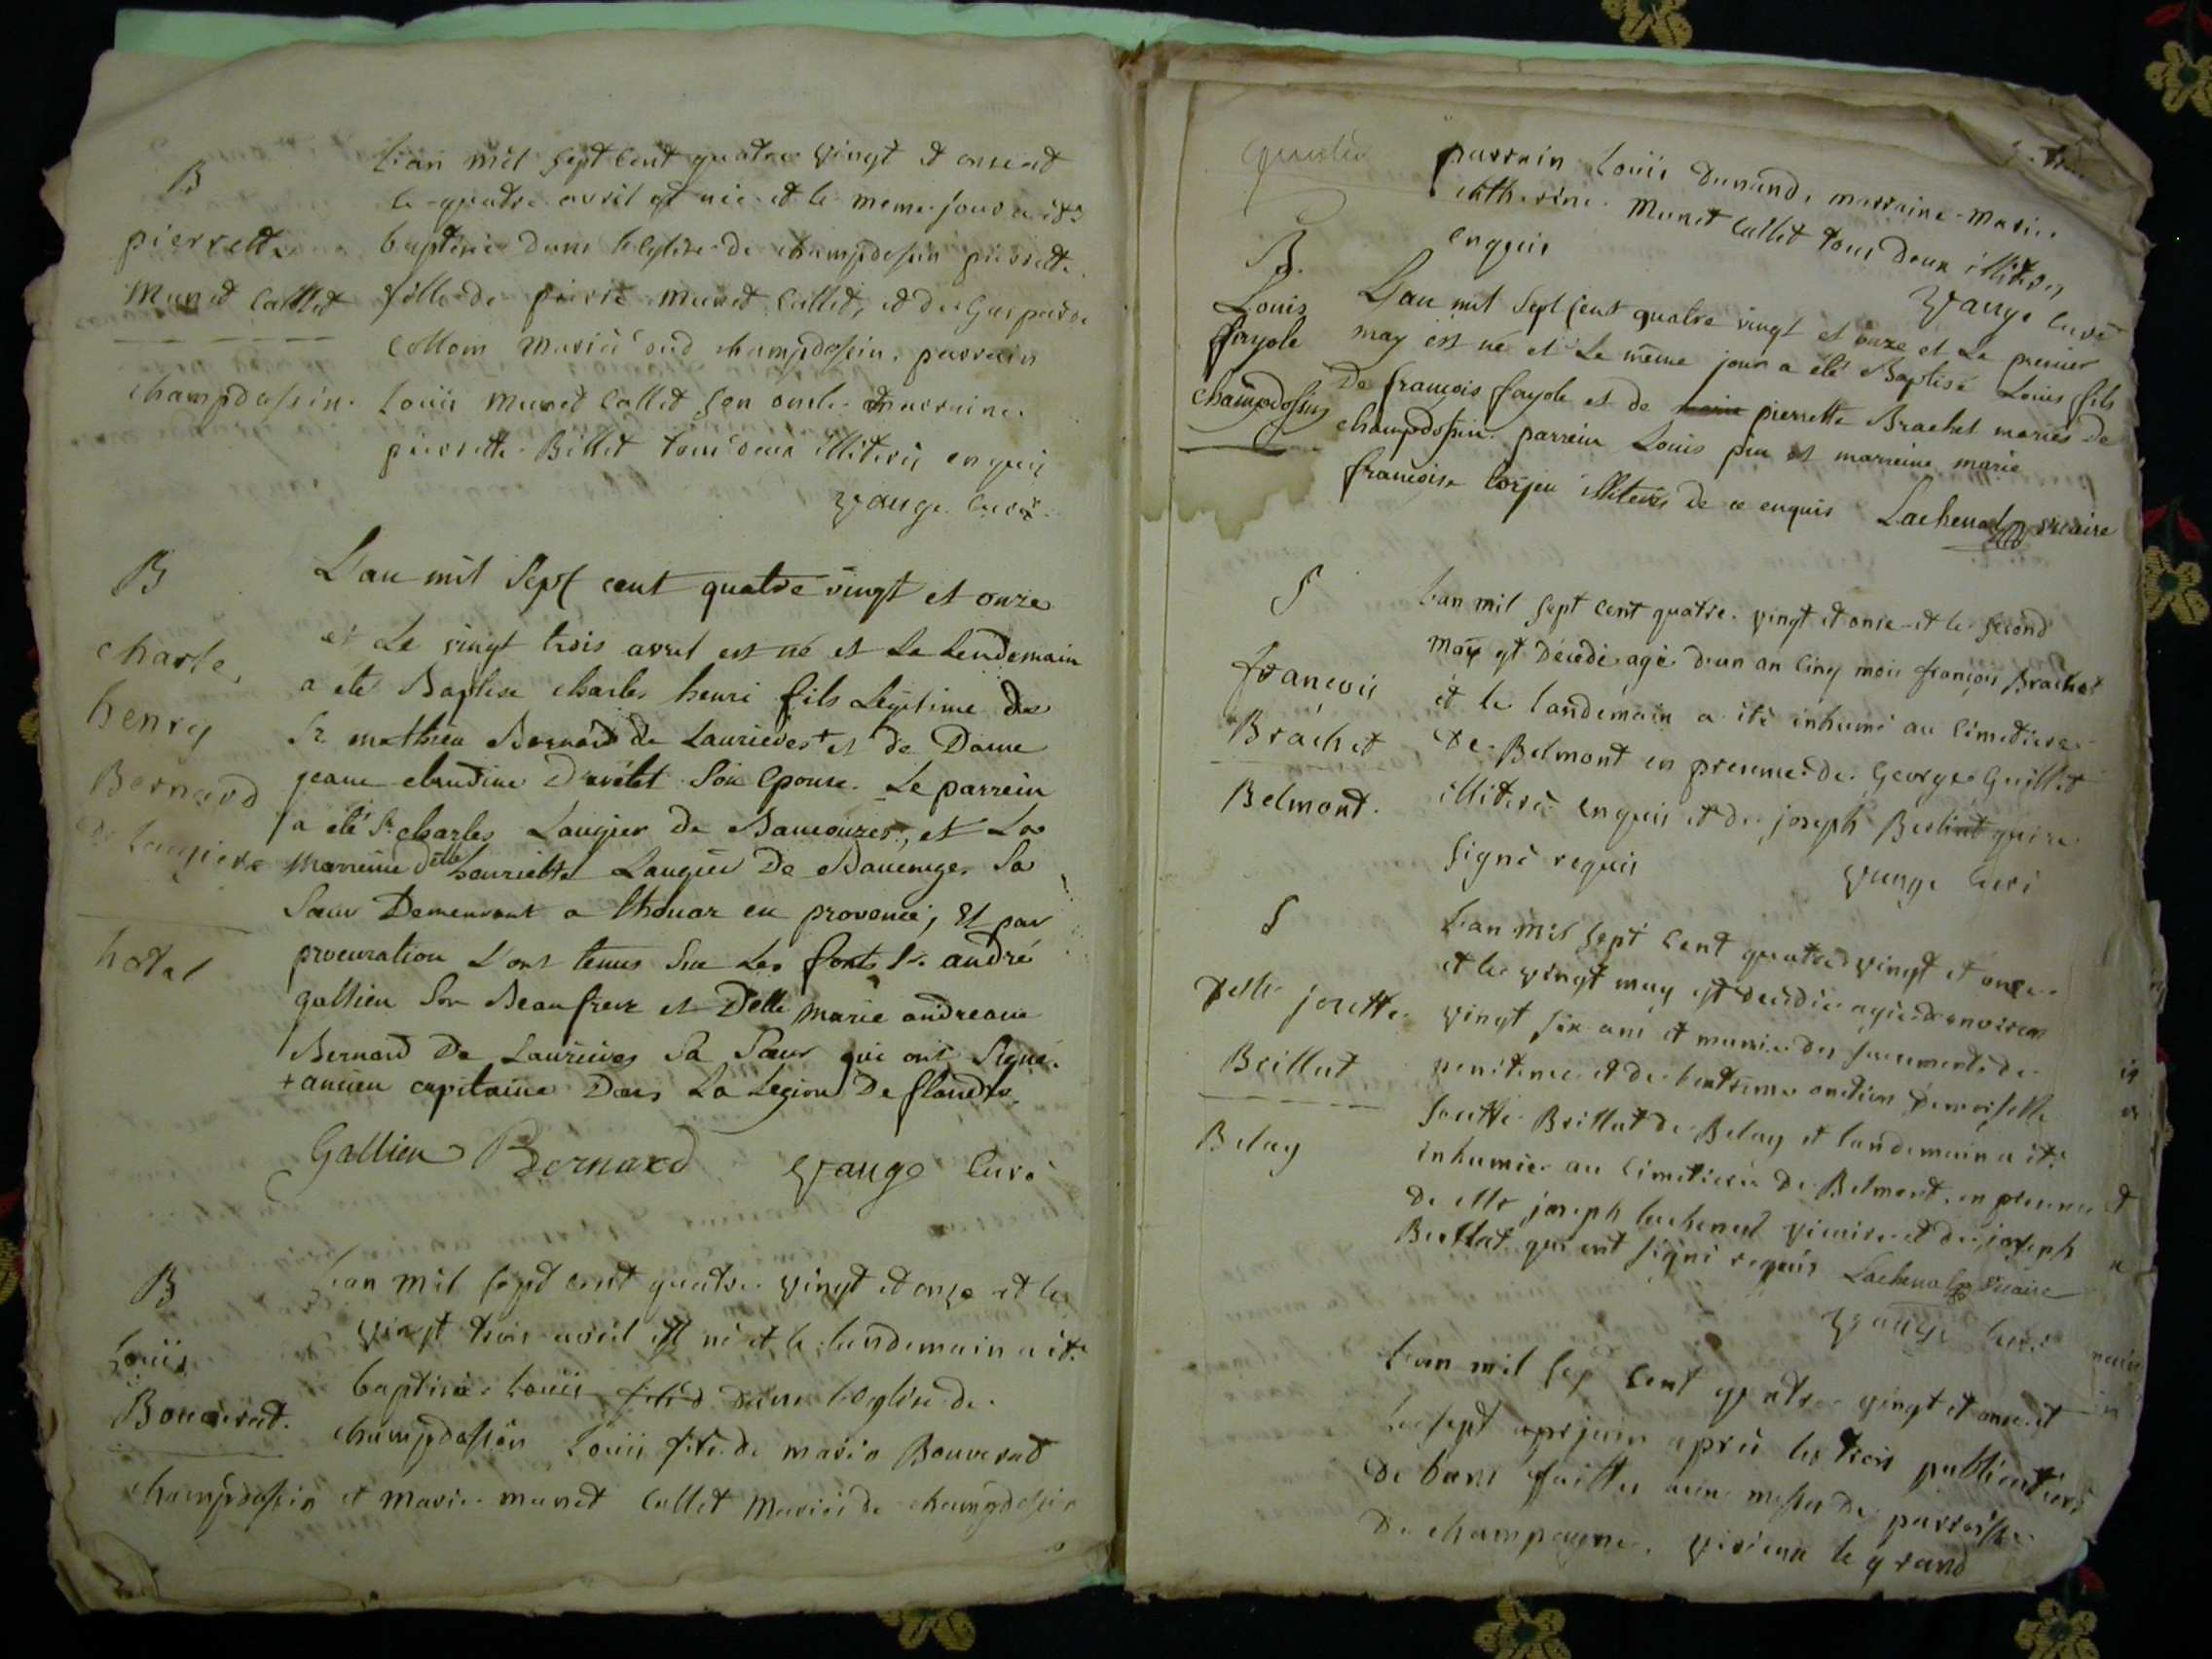 B
pierrette
Munet Callet
champdossin.
L'an mil sept cent quatre vingt et onze et
le quatre avril est née et le meme jour a été
baptisée dans l'eglise de champdossin pierrette
fille de pierre Munet Callet, et de Gasparde
Collom mariés aud champdossin, parrain
Louis Munet Callet son oncle et marraine
pierrette Billet tous deux illiterés enquis
Vauge curé
B
charle
henry
Bernard
de laugiere
hotal
L'an mil sept cent quatre vingt et onze
et Le vingt trois avril est né et Le Lendemain
a été Baptisé charles henri fils Légitime de
Sr mathieu Bernard de Laurieres + et de Dame
jeane claudine Son Epouse. Le parrein
a été Sr charles Laugier De et La
marreine Delle henriette Laugier De Sa
Soeur Demeurant a thouar en provence, Et par
procuration L'ont tenus Sur Les fonts Sr andré
gallien Son Beaufrere et Delle marie andreane
Bernard De Laurieres Sa Soeur qui ont Signé.
+ ancien capitaine Dans La Legion De flandre.
Gallien Bernard Vauge Curé
B
Louis
Bouverat.
champdossin
L'an mil sept cent quatre vingt et onze et le
vingt trois avril est né et le landemain a été
baptisé Louis fils d dans l'eglise de
champdossin Louis fils de marin Bouverat
et marie munet Callet mariés de champdossin
parrain Louis Dunand, marraine Marie
catherine Munet Callet tous deux illiterés
enquis
Vauge curé
B.
Louis
fayole
champdossin
L'an mil Sept Cent quatre vingt et onze et Le premier
may est né et Le même jour a été Baptisé Louis fils
De françois fayole et de marie pierrette Brachet mariés De
champdossin. parrein Louis pin et marreine marie
françoise illiterés de ce enquis Lachenal vicaire
S
françois
Brachet
Belmont.
L'an mil sept cent quatre vingt et onze et le second
may est décédé agé d'un an cinq mois françois Brachet
et le landemain a été inhumé au cimetiere
de Belmont en presence de George Guillot
illiteré enquis et de joseph Berliat qui a
signé requis Vauge curé
S
Delle josette
Brillat
Belay
L'an mil sept cent quatre vingt et onze
et le vingt may est décédée agée d'environ
vingt six ans et munie des sacrements de
penitence et de l'extreme onction Demoiselle
josette Brillat de Belay et landemain a été
inhumée au cimetiere de Belmont, en presence
de Mre joseph lachenal vicaire et de joseph
Berliat qui ont signé requis Lachenal vicaire
Vauge curé
L'an mil sep cent quatre vingt et onze et
le sept apr juin après les trois publications
de bans faittes aux messes de parroisse
de champagne, virieux le grand